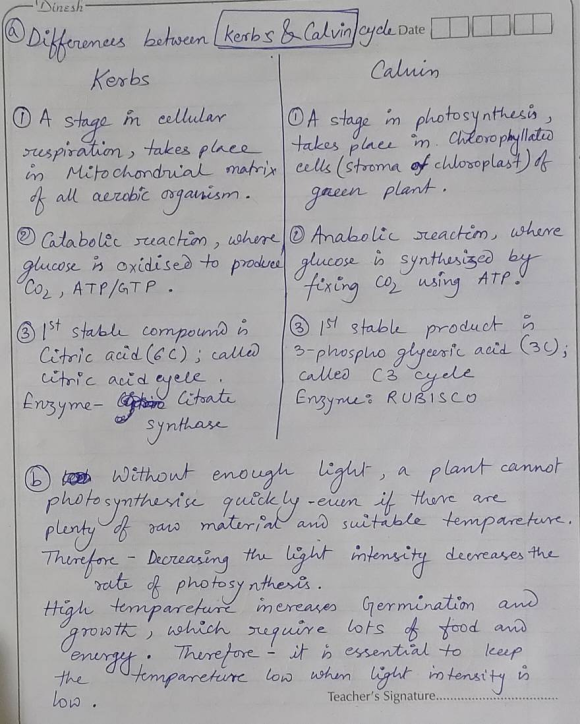 Dinesh
(a) Differences between Kerbs & Calvin cycle Date
Kerbs
① A stage in cellular
respiration, takes place
in Mitochondrial matrix
of all aerobic organism.
② Catabolic reaction, where
glucose is oxidised to produce
CO2, ATP/GTP.
③ 1st stable compound is
Citric acid (6C); called
citric acid cycle.
Enzyme- Citrate
synthase
Calvin
① A stage in photosynthesis,
takes place in Chlorophyllated
cells (stroma of chloroplast) of
green plant.
② Anabolic reaction, where
glucose is synthesized by
fixing CO2 using ATP.
③ 1st stable product is
3-phospho glyceric acid (3C);
called C3 cycle
Enzyme: RUBISCO
(b) Without enough light, a plant cannot
photosynthesise quickly - even if there are
plenty of raw material and suitable tempareture.
Therefore - Decreasing the light intensity decreases the
rate of photosynthesis.
High tempareture increases Germination and
growth, which require lots of food and
energy. Therefore - it is essential to keep
the tempareture low when light intensity is
low.
Teacher's Signature